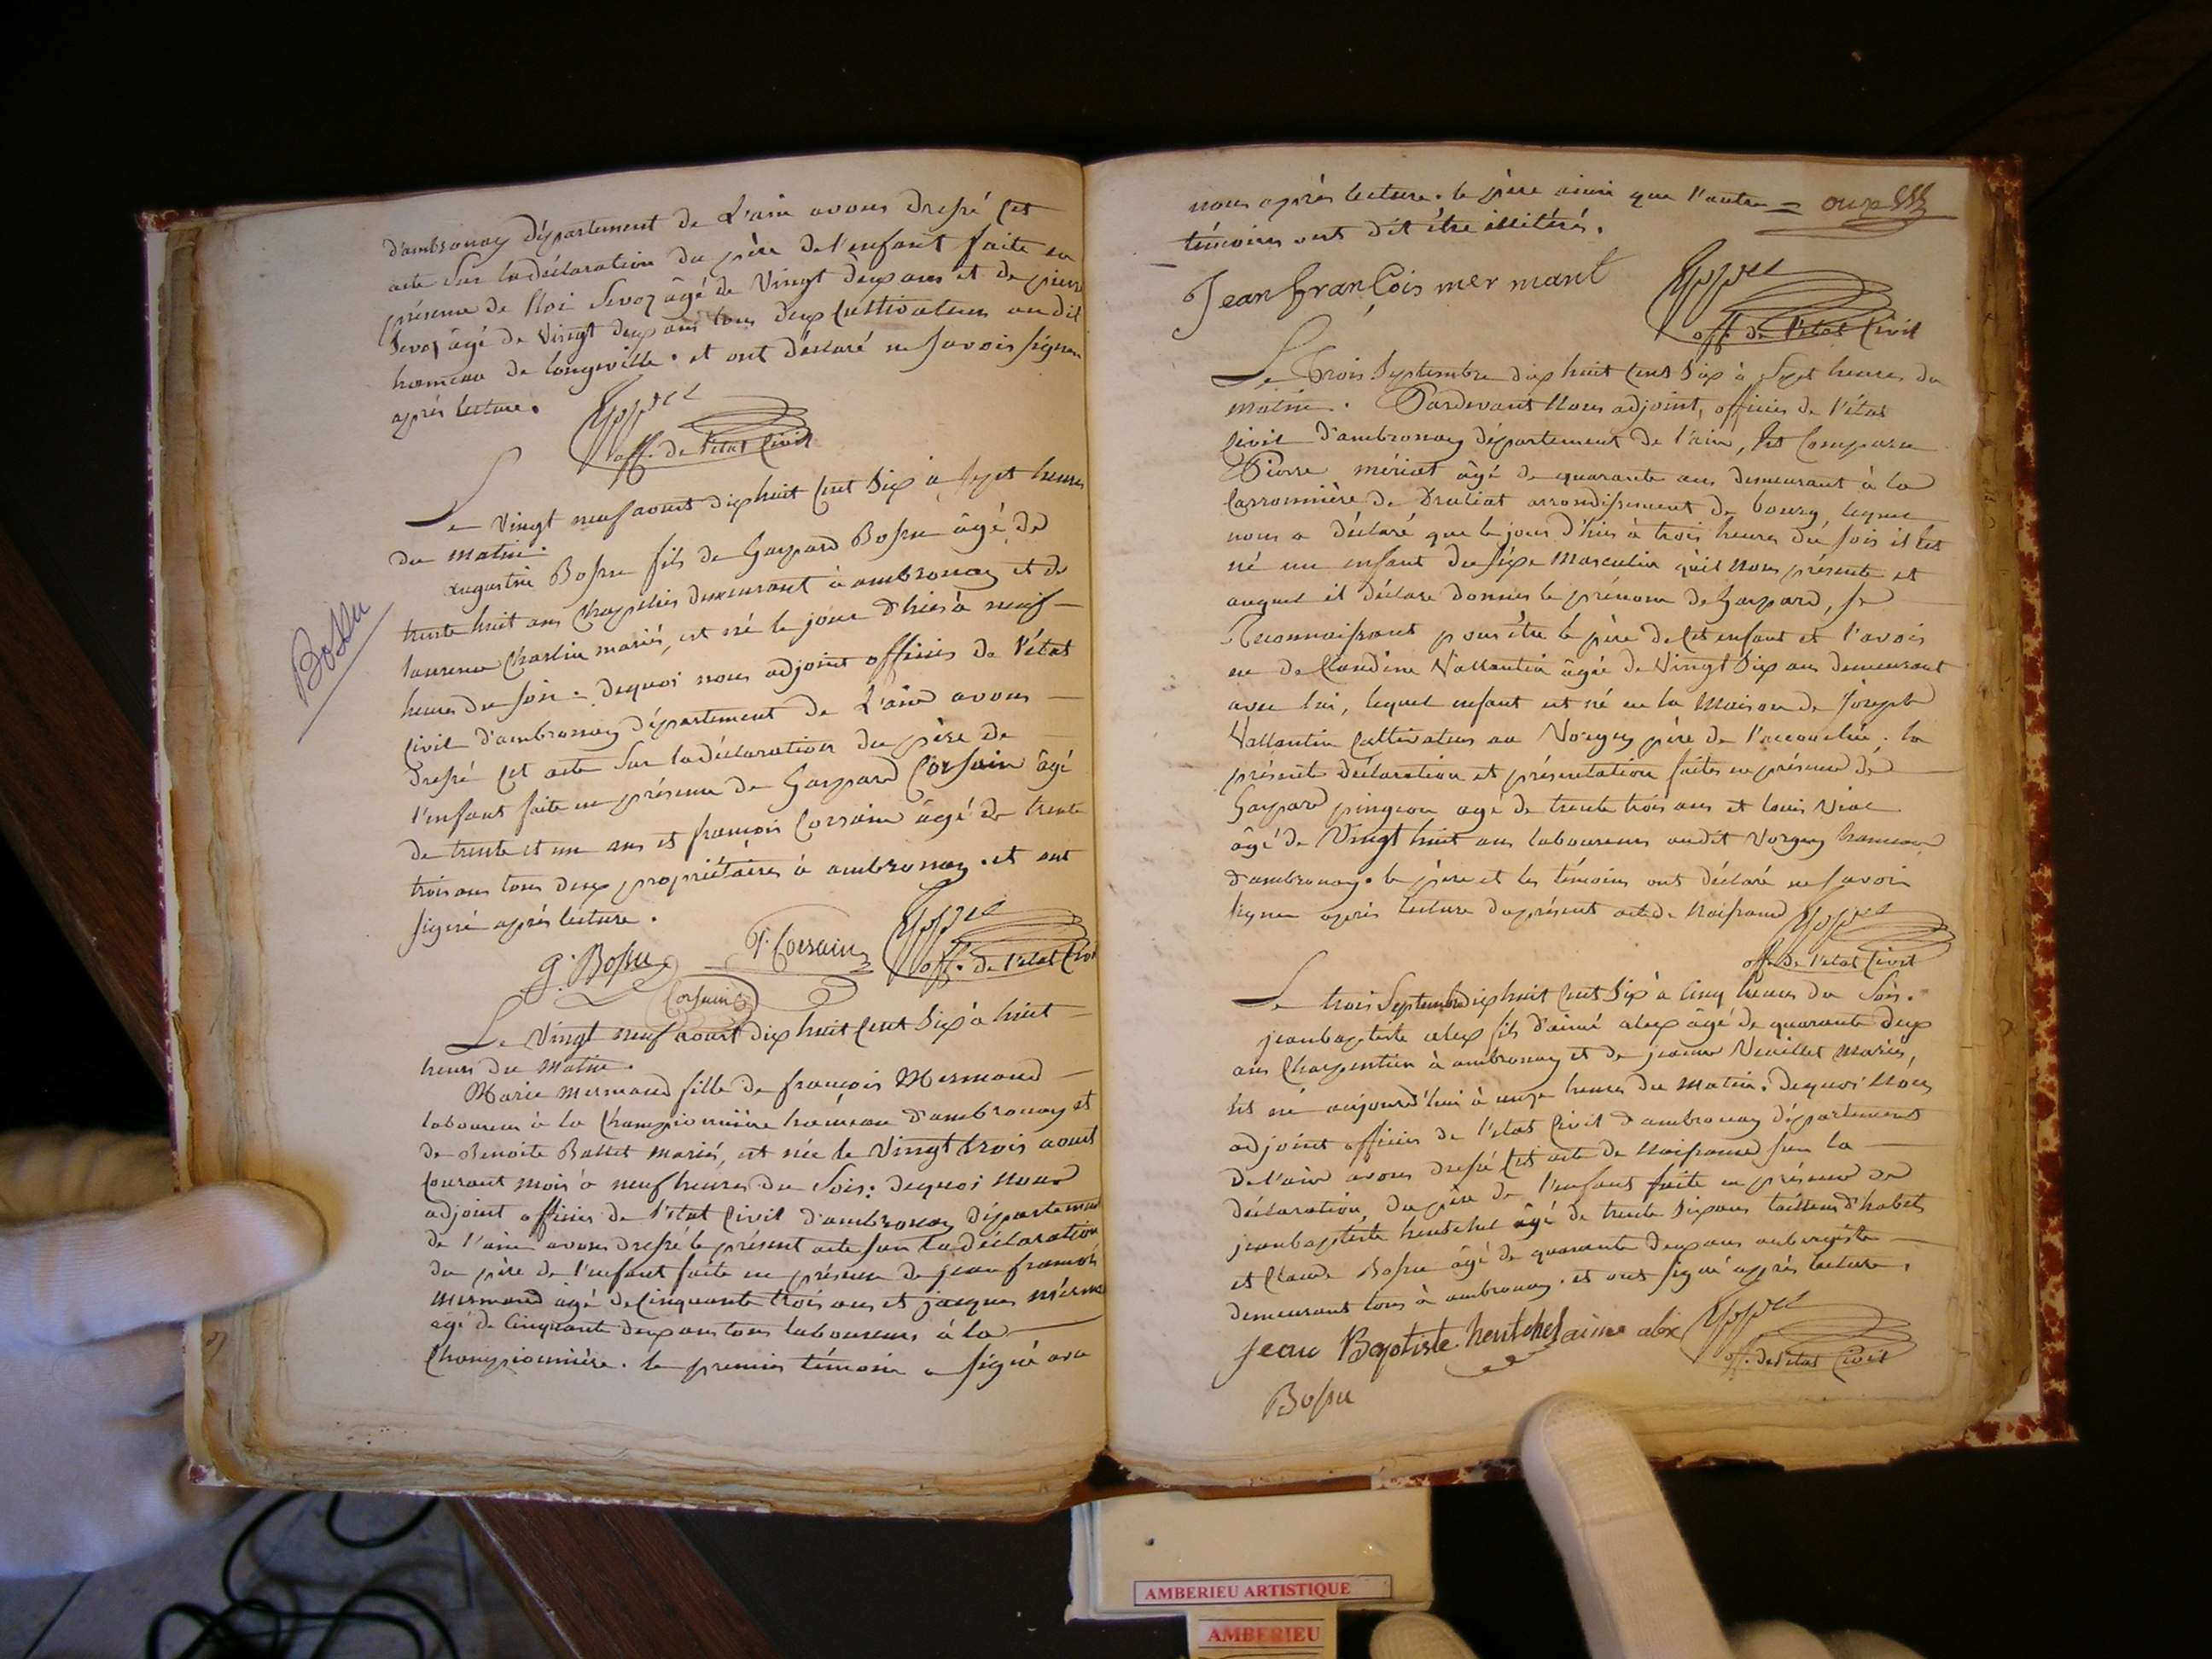 d'ambronay département de L'ain avons dressé Cet
acte Sur la déclaration du père de l'enfant faite en
présence de Noé Sevoz âgé de Vingt deux ans et de pierre
Sevoz âgé de Vingt deux ans tous deux Cultivateurs au dit
hameau de longeville. et ont déclaré ne Savoir signer
après lecture.
off. de l'état Civil
Le Vingt neuf aout dix huit Cent Six à Sept heures
du matin.
augustin Bossu fils de Gaspard Bossu âgé de
trente huit ans Chapelier demeurant à ambronay et de
laurence Charlin mariés, est né le jour d'hier à neuf
heures du soir. Dequoi nous adjoint officier de l'état
Civil d'ambronay département de L'ain avons
dressé Cet acte Sur la déclaration du père de
l'enfant faite en présence de Gaspard Corsain âgé
de trente et un ans et françois Corsain âgé de trente
trois ans tous deux propriétaires à ambronay. et ont
signé après lecture.
Bossu
G. Bossu F. Corsain off. de l'état Civil
Corsain
Le Vingt neuf aout dix huit Cent Six à huit
heures du Matin.
Marie Mermand fille de françois Mermand
laboureur à la Championnière hameau d'ambronay et
de Benoite Ballet mariés, est née le Vingt trois aout
Courant mois à neuf heures du Soir: dequoi Nous
adjoint officier de l'état Civil d'ambronay département
de l'ain avons dressé le présent acte sur la déclaration
du père de l'enfant faite en présence de jean françois
Mermand agé de Cinquante trois ans et jacques
âgé de Cinquante deux ans tous laboureurs à la
Championnière. le premier témoin a signé avec
nous après lecture. le père ainsi que l'autre =
témoins ont dit être illitérés.
Jean françois mermant
off. de l'état Civil
Le Trois Septembre dix huit Cent Six à Sept heures du
matin. Pardevant Nous adjoint, officier de l'état
Civil d'ambronay département de l'ain, Est Comparu
Pierre mériat âgé de quarante ans demeurant à la
Carronnière de Druliat arrondissement de bourg, lequel
nous a déclaré que le jour d'hier à trois heures du soir il Est
né un enfant du sexe Masculin qu'il Nous présente et
auquel il déclare donner le prénom de Gaspard, Se
Reconnaissant pour être le père de Cet enfant et l'avoir
eu de Claudine Vallantin âgée de Vingt Six ans demeurant
avec lui, lequel enfant est né en la Maison de Joseph
Vallantin Cultivateur au Vorgey père de l'accouchée. la
présente déclaration et présentation faites en présence de
Gaspard pingeon agé de trente trois ans et louis Vial
âgé de Vingt huit ans laboureurs audit Vorgey hameau
d'ambronay. le père et les témoins ont déclaré ne savoir
signer après lecture du présent acte de Naissance
off. de l'état Civil
Le trois Septembre dix huit Cent Six à Cinq heures du Soir.
jean baptiste alex fils d'aimé alex âgé de quarante deux
ans Charpentier à ambronay et de jeanne Neuillet mariés,
Est né aujourd'hui à onze heures du matin. Dequoi Nous
adjoint officier de l'état Civil d'ambronay département
de l'ain avons dressé Cet acte de Naissance sur la
déclaration du père de l'enfant faite en présence de
jean baptiste hentchel âgé de trente Six ans tailleur d'habits
et Claude Bossu âgé de quarante deux ans aubergiste
demeurant tous à ambronay. et ont signé après lecture.
Jean Baptiste hentchel aimé alex
off. de l'état Civil
Bossu
AMBERIEU ARTISTIQUE
AMBERIEU